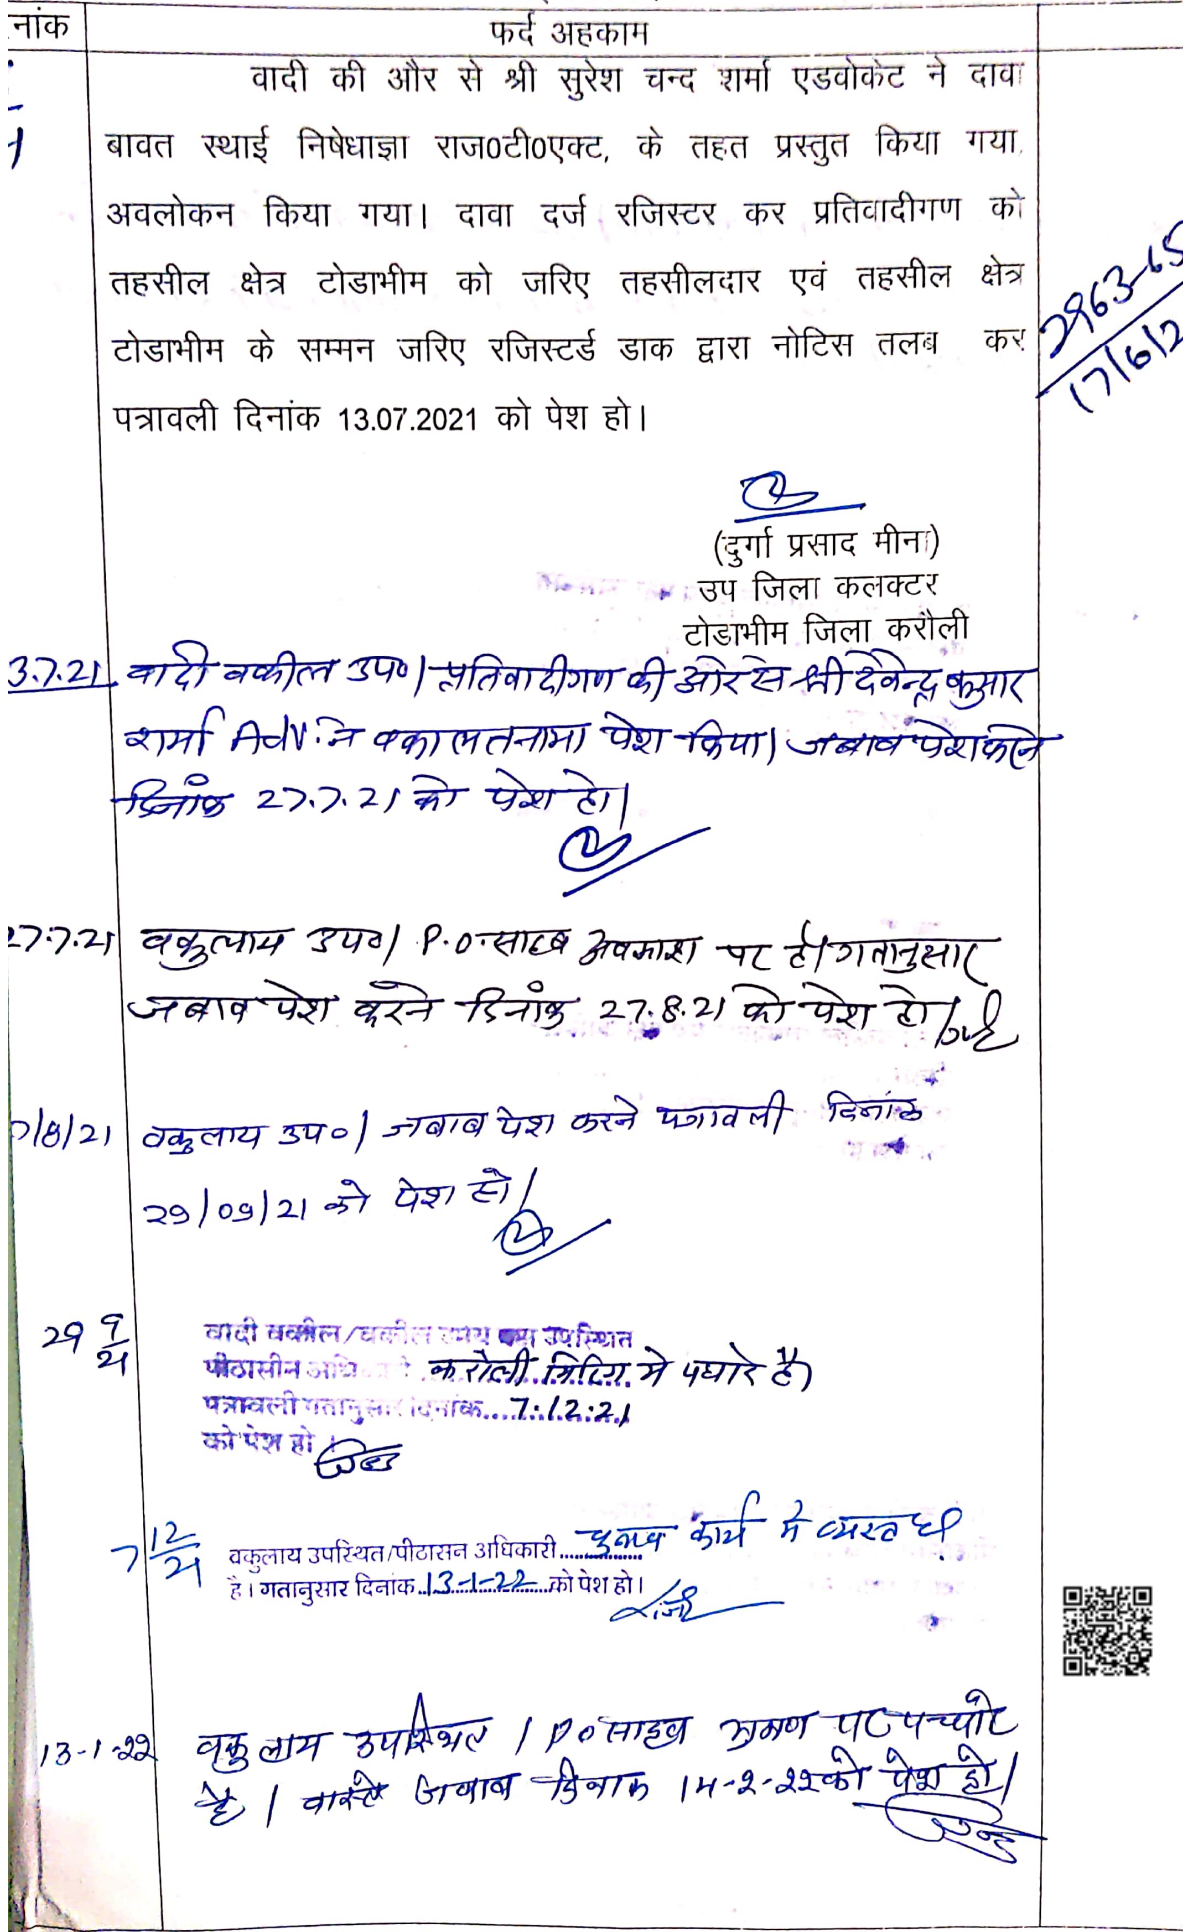 नांक
फर्द अहकाम
वादी की और से श्री सुरेश चन्द शर्मा एडवोकेट ने दावा
बावत स्थाई निषेधाज्ञा राज0टी0एक्ट, के तहत प्रस्तुत किया गया.
अवलोकन किया गया। दावा दर्ज रजिस्टर कर प्रतिवादीगण को
तहसील क्षेत्र टोडाभीम को जरिए तहसीलदार एवं तहसील क्षेत्र
टोडाभीम के सम्मन जरिए रजिस्टर्ड डाक द्वारा नोटिस तलब कर
पत्रावली दिनांक 13.07.2021 को पेश हो।
2963-65
17/6/2
(दुर्गा प्रसाद मीना)
उप जिला कलक्टर
टोडाभीम जिला करौली
3.7.21 वादी वकील उप०। प्रतिवादीगण की ओर से श्री देवेन्द्र कुमार
शर्मा Adv. ने वकालतनामा पेश किया। जबाव पेश करने
दिनांक 27.7.21 को पेश हो।
27.7.21 वकुलाय उप०। P.O. साहब अवकाश पर है। गतानुसार
जबाव पेश करने दिनांक 27.8.21 को पेश हो।
7/8/21 वकुलाय उप०। जबाब पेश करने पत्रावली दिनांक
29/09/21 को पेश हो।
29 9/21 वादी वकील/वकील उभय पक्ष उपस्थित
पीठासीन अधि करौली मिटिंग मे पधारे है।
पत्रावली गतानुसार दिनांक....7.12.21
को पेश हो।
7 12/21 वकुलाय उपस्थित/पीठासन अधिकारी....चुनाव कार्य मे व्यस्त
है। गतानुसार दिनांक..13-1-22...को पेश हो।
13-1-22 वकुलाय उपस्थित। P.O साहब भ्रमण पर पधारे
है। वास्ते जवाब दिनांक 14-2-22 को पेश हो।